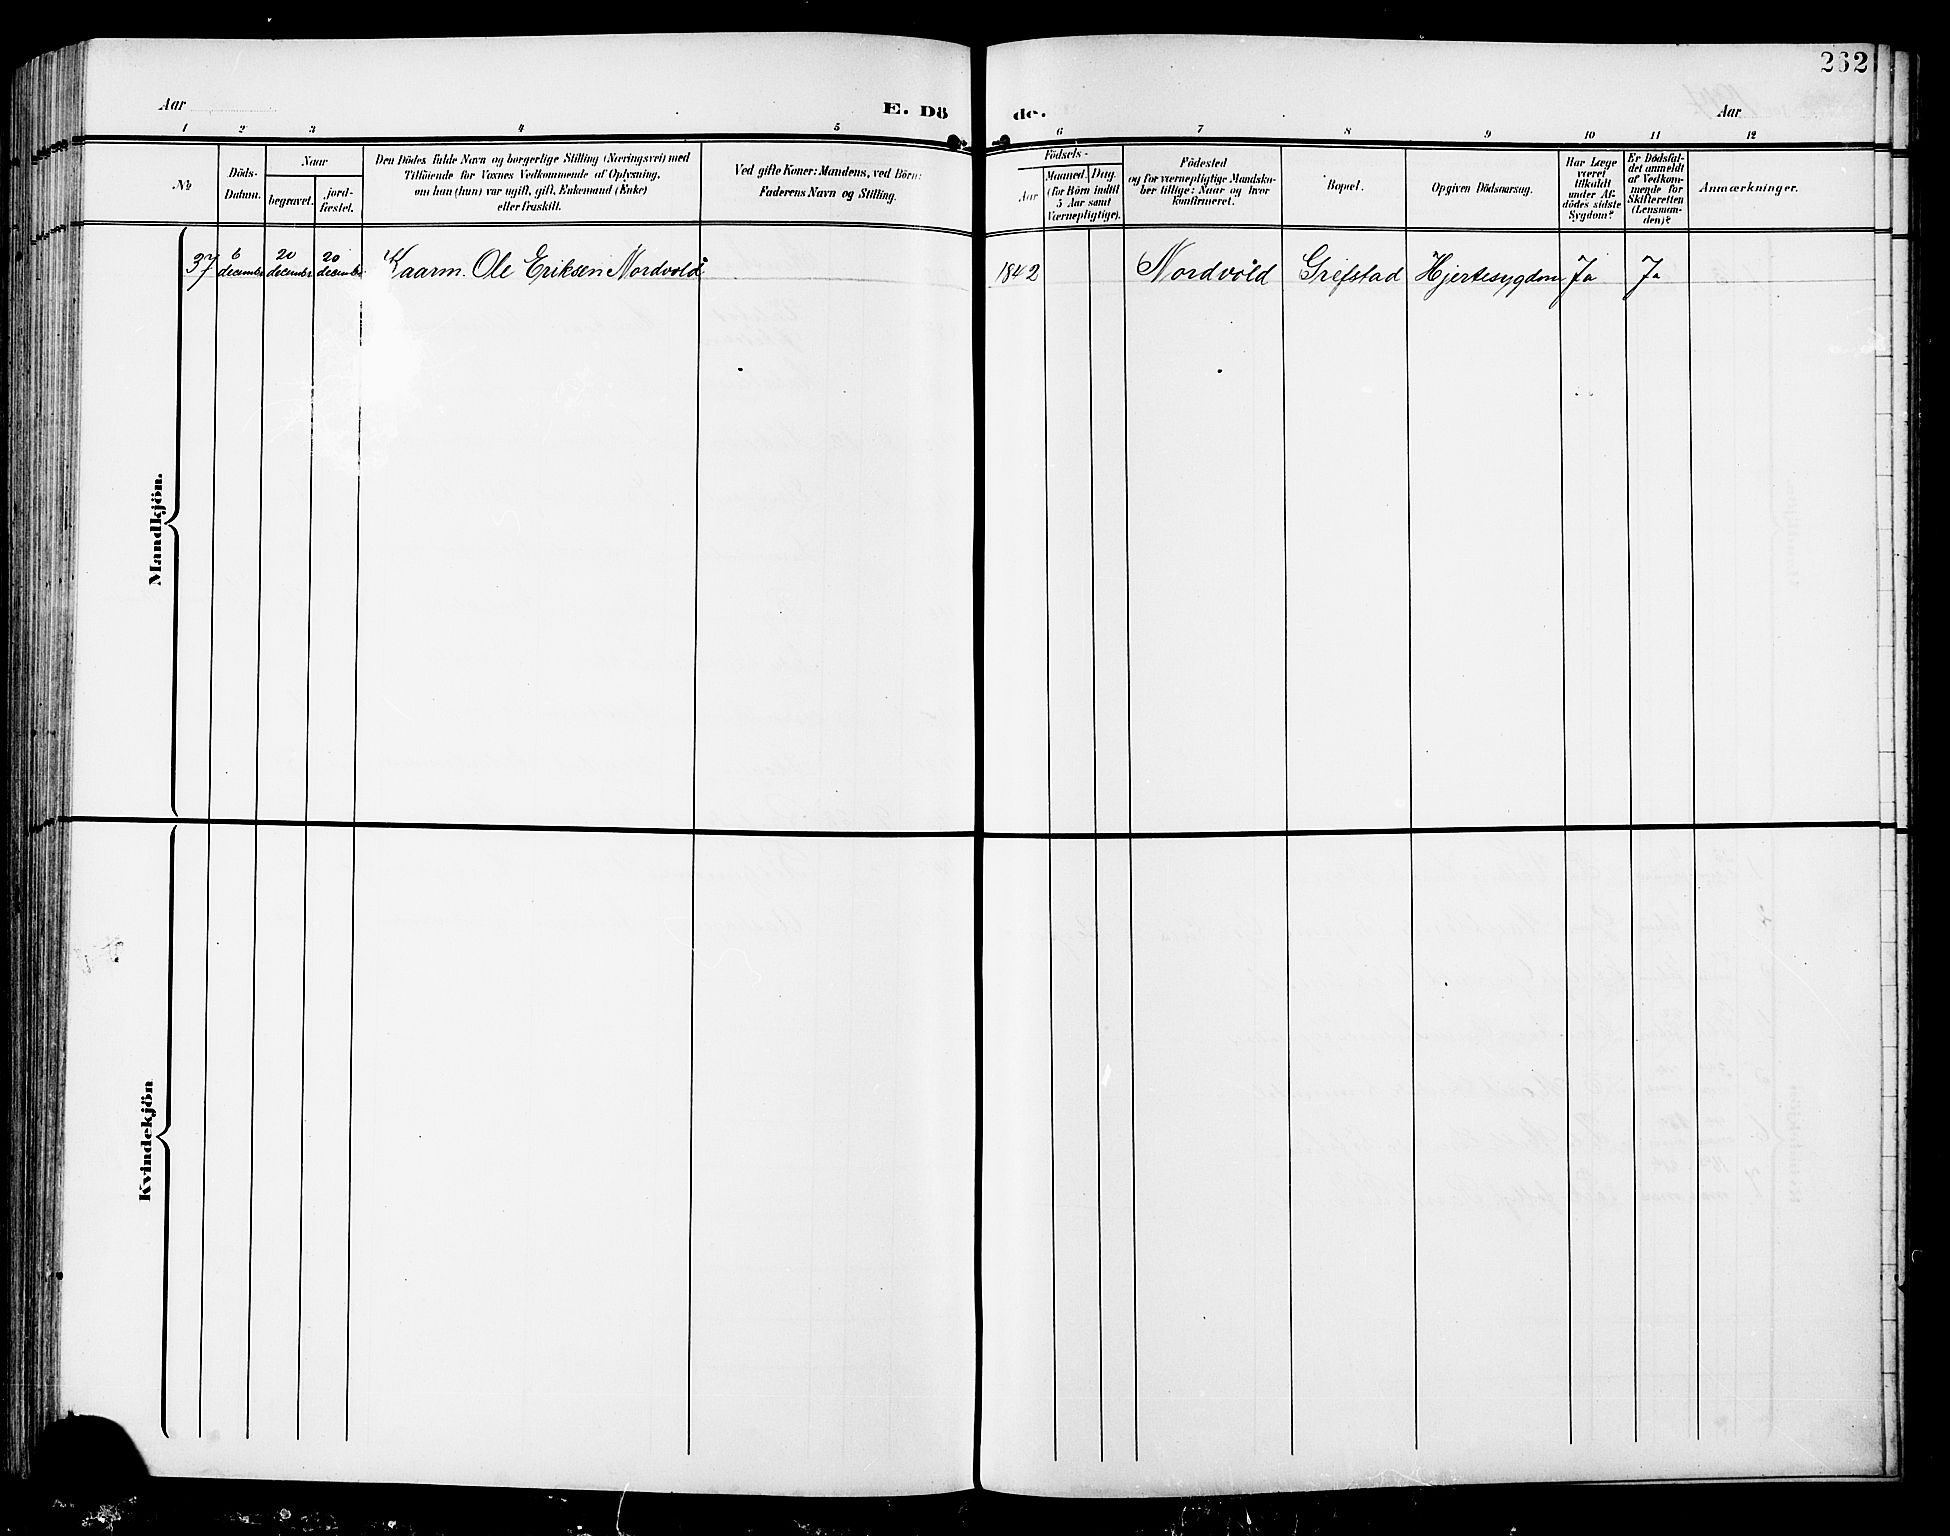 262
Aar
E. Dö
de.
Aar
1 2 3 4 5 6 7 8 9 10 11 12
No
Döds-
Datum.
Naar
begravet.
jord-
fæstet.
Den Dödes fulde Navn og borgerlige Stilling (Næringsvei) med
Tilföiende for Voxnes Vedkommende af Oplysning,
om han (hun) var ugift, gift, Enkemand (Enke)
eller fraskilt.
Ved gifte Koner: Mandens, ved Börn:
Faderens Navn og Stilling.
Födsels-
Aar
Maaned.
Dag.
(for Börn indtil
5 Aar samt
Værnepligtige).
Födested
og for værnepligtige Mandska-
ber tillige: Naar og hvor
konfirmeret.
Bopæl.
Opgiven Dödsaarsag.
Har Læge
været
tilkaldt
under Af-
dödes sidste
Sygdom?
Er Dödsfal-
det anmeldt
af Vedkom-
mende for
Skifteretten
(Lensman-
den)?
Anmærkninger.
37
6
december
20
december
20
december
Kaarm. Ole Eriksen Nordvold
1842
Nordvold
Grefstad
Hjertesygdom
Ja
Ja
Mandkjön.
Kvindekjön